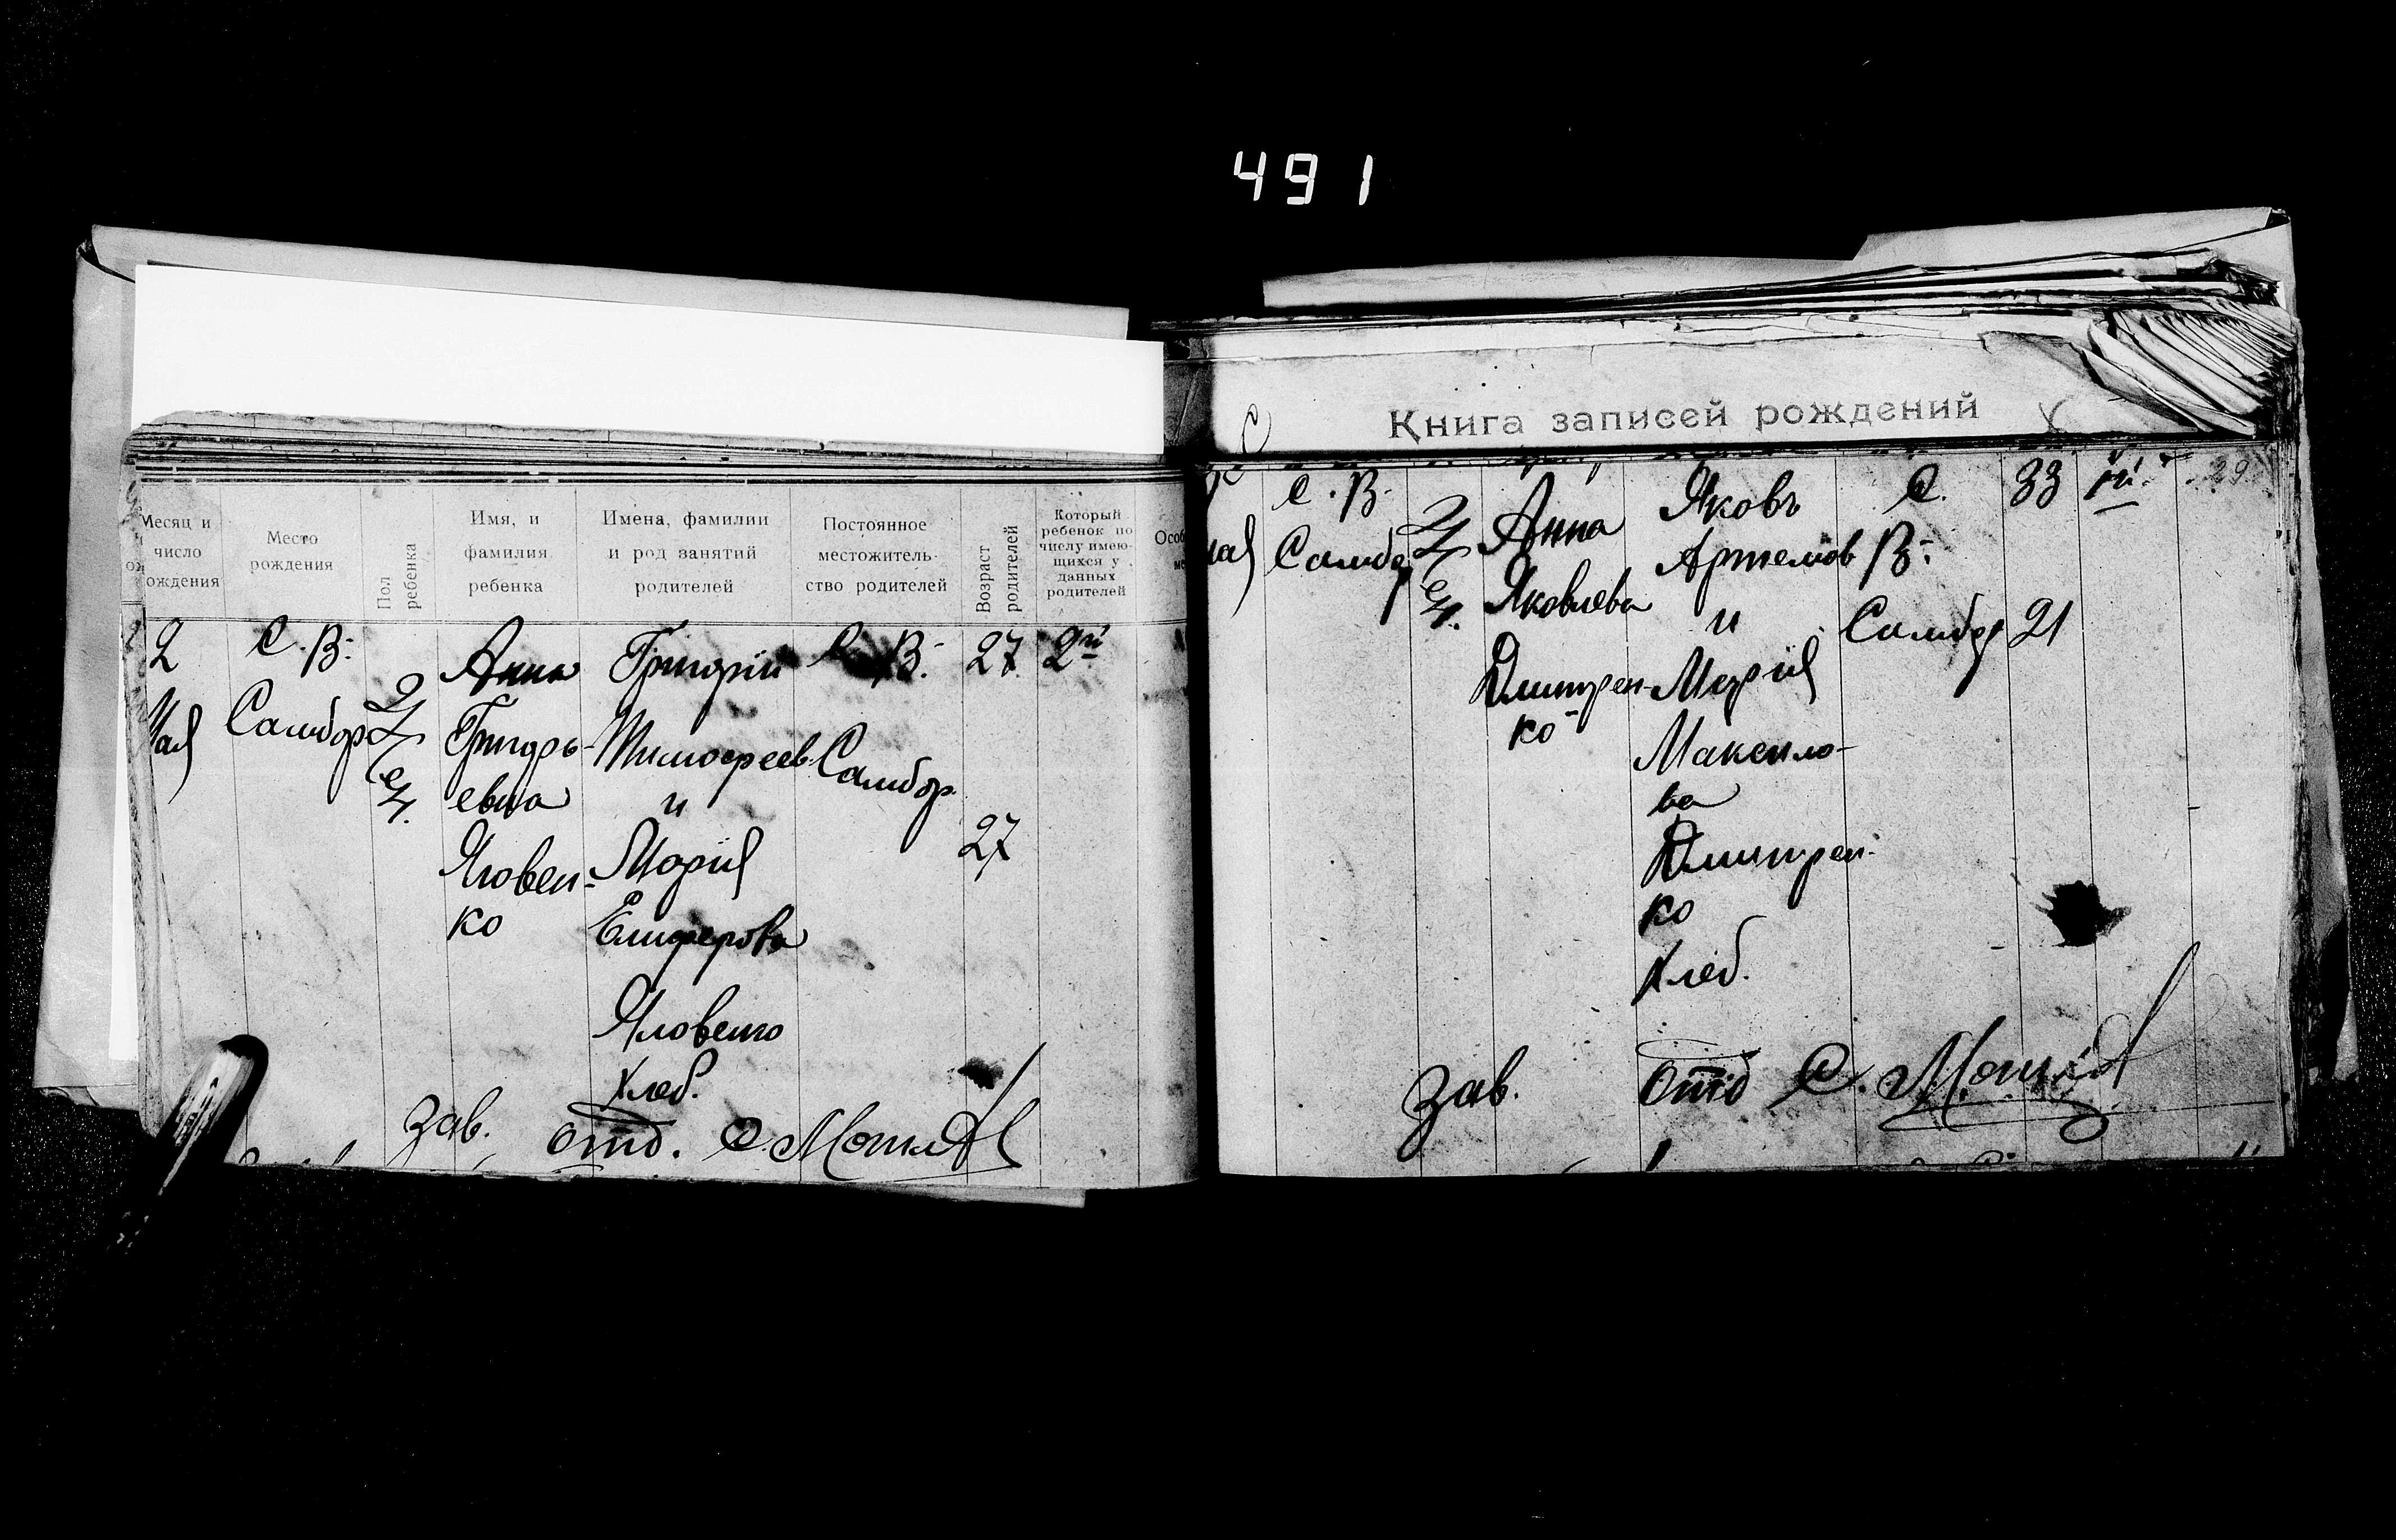 491
Месяц и число ождения
Место рождения
Пол ребенка
Имя, и фамилия ребенка
Имена, фамилии и род занятий родителей
Постоянное местожитель-ство родителей
Возраст родителей
Который ребенок по числу имею-щихся у данных родителей
Особ
2
мая
С. В.
Самбор
Жен.
Анна
Григорь-
евна
Яловен-
ко
Григорій
Тимофеев
и
Марія
Елиферова
Яловенко
хлеб.
С. В.
Самбор
27
27
2й
Зав. отд. С.
Книга записей рождений
мая
С. В.
Самбор
Жен.
Анна
Яковлева
Дмитрен-
ко
Яковъ
Артемов
и
Марія
Макеимо-
ва
Дмитрен-
ко
Хлеб.
С.
В.
Самбор
33
21
29
Зав. отд С.